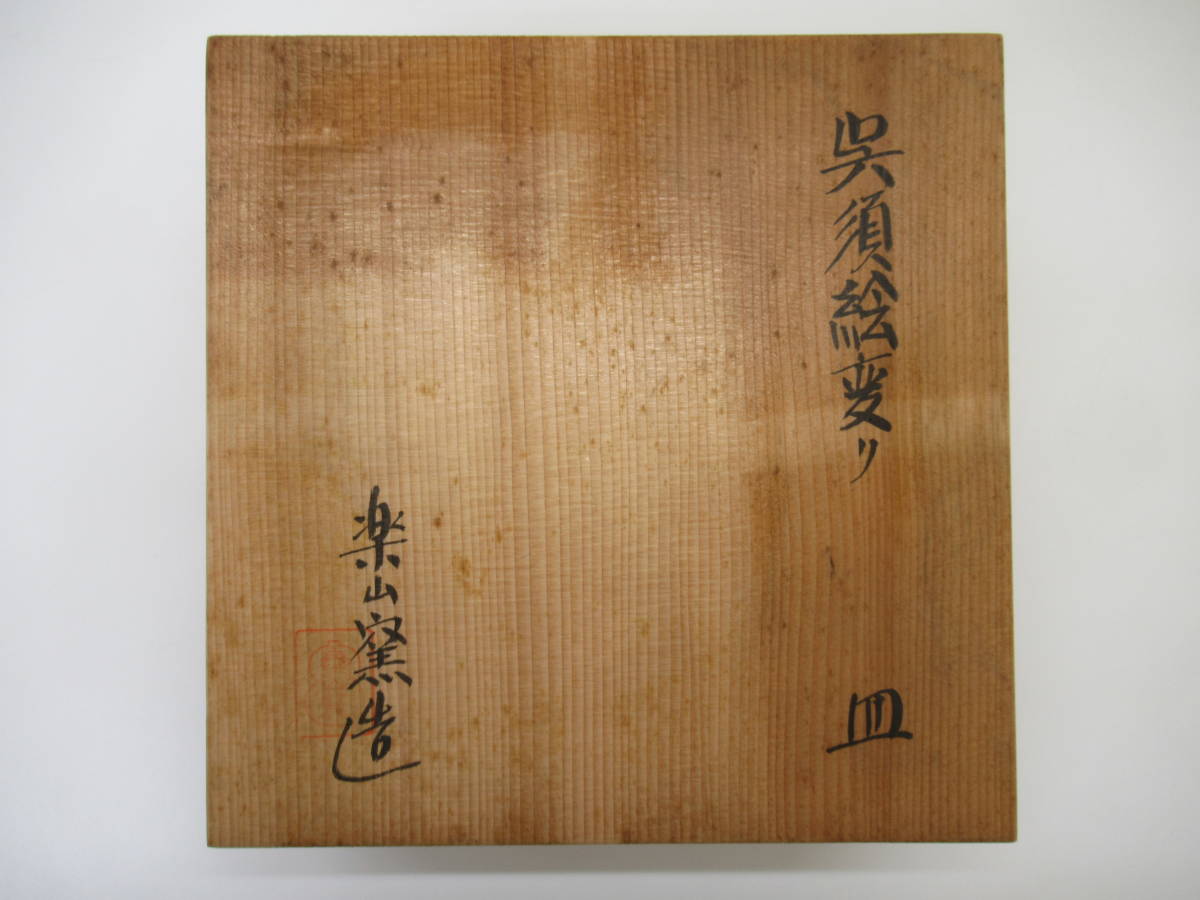 呉須絵変り　皿
楽山窯造